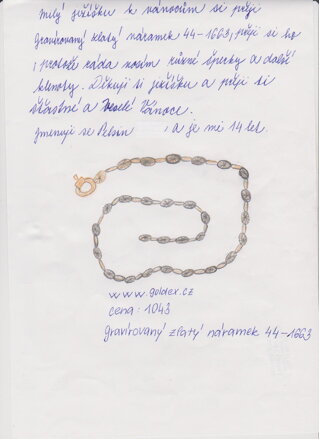 milý ježíšku k vánocům si přeji
gravírovaný zlatý náramek 44-1663, přeji si ho
i protože ráda nosím různé šperky a další
klenoty. Děkuji ti ježíšku a přeji ti
šťastné a veselé Vánoce.
Jmenuji se a je mi 14 let.
www.goldex.cz
cena: 1043
gravírovaný zlatý náramek 44-1663